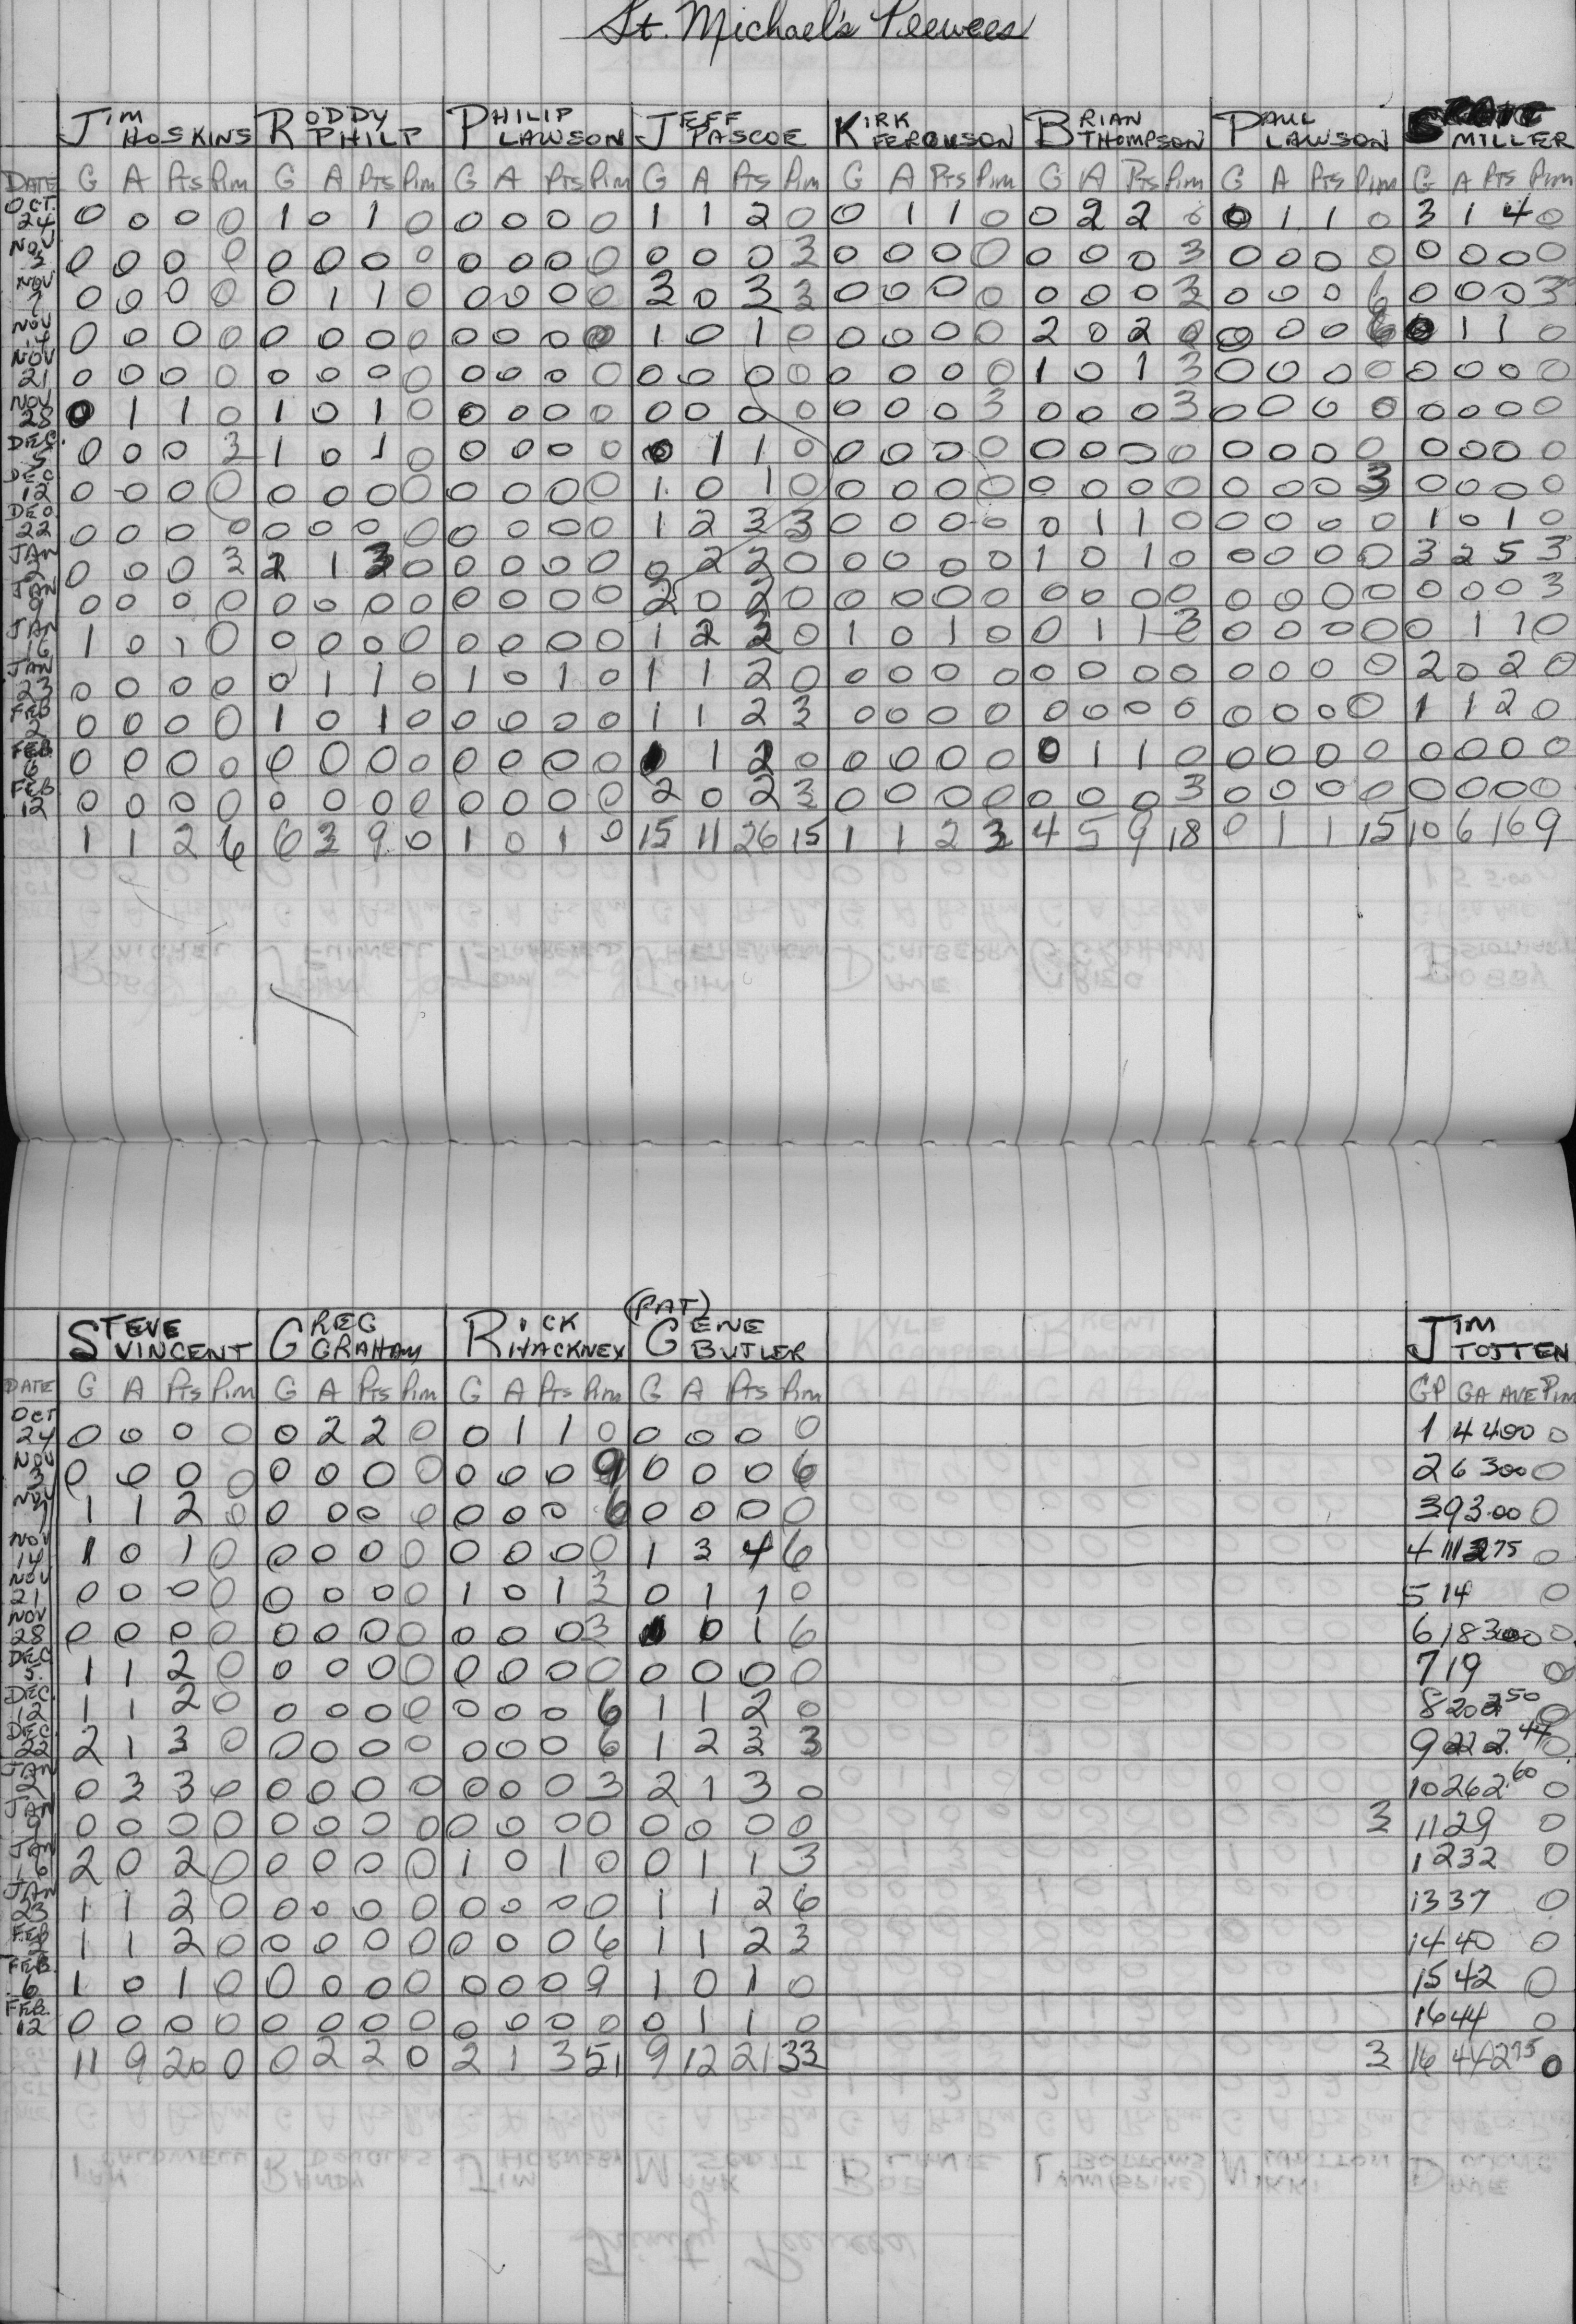 St. Michael's Peewees
JIM HOSKINS RODDY PHILP PHILIP LAWSON JEFF PASCOE KIRK FERGUSON BRIAN THOMPSON PAUL LAWSON MILLER
DATE G A Pts Pim G A Pts Pim G A Pts Pim G A Pts Pim G A Pts Pim G A Pts Pim G A Pts Pim G A Pts Pim
OCT. 24 0 0 0 0 1 0 1 0 0 0 0 0 1 1 2 0 0 1 1 0 0 2 2 0 0 1 1 0 3 1 4 0
NOV 3 0 0 0 0 0 0 0 0 0 0 0 0 0 0 0 3 0 0 0 0 0 0 0 3 0 0 0 0 0 0 0 0
NOV 7 0 0 0 0 0 1 1 0 0 0 0 0 3 0 3 3 0 0 0 0 0 0 0 3 0 0 0 6 0 0 0 3
NOV 14 0 0 0 0 0 0 0 0 0 0 0 0 1 0 1 0 0 0 0 0 2 0 2 0 0 0 0 6 0 1 1 0
NOV 21 0 0 0 0 0 0 0 0 0 0 0 0 0 0 0 0 0 0 0 0 1 0 1 3 0 0 0 0 0 0 0 0
NOV 28 0 1 1 0 1 0 1 0 0 0 0 0 0 0 0 0 0 0 0 3 0 0 0 3 0 0 0 0 0 0 0 0
DEC. 5 0 0 0 3 1 0 1 0 0 0 0 0 0 1 1 0 0 0 0 0 0 0 0 0 0 0 0 0 0 0 0 0
DEC 12 0 0 0 0 0 0 0 0 0 0 0 0 1 0 1 0 0 0 0 0 0 0 0 0 0 0 0 3 0 0 0 0
DEC. 22 0 0 0 0 0 0 0 0 0 0 0 0 1 2 3 3 0 0 0 0 0 1 1 0 0 0 0 0 1 0 1 0
JAN 2 0 0 0 3 2 1 3 0 0 0 0 0 0 2 2 0 0 0 0 0 1 0 1 0 0 0 0 0 3 2 5 3
JAN 9 0 0 0 0 0 0 0 0 0 0 0 0 2 0 2 0 0 0 0 0 0 0 0 0 0 0 0 0 0 0 0 3
JAN 16 1 0 1 0 0 0 0 0 0 0 0 0 1 2 3 0 1 0 1 0 0 1 1 3 0 0 0 0 0 1 1 0
JAN 23 0 0 0 0 0 1 1 0 1 0 1 0 1 1 2 0 0 0 0 0 0 0 0 0 0 0 0 0 2 0 2 0
FEB 2 0 0 0 0 1 0 1 0 0 0 0 0 1 1 2 3 0 0 0 0 0 0 0 0 0 0 0 0 1 1 2 0
FEB. 6 0 0 0 0 0 0 0 0 0 0 0 0 1 1 2 0 0 0 0 0 0 1 1 0 0 0 0 0 0 0 0 0
FEB 12 0 0 0 0 0 0 0 0 0 0 0 0 2 0 2 3 0 0 0 0 0 0 0 3 0 0 0 0 0 0 0 0
1 1 2 6 6 3 9 0 1 0 1 0 15 11 26 15 1 1 2 3 4 5 9 18 0 1 1 15 10 6 16 9
STEVE VINCENT GREG GRAHAM RICK HACKNEY (PAT) GENE BUTLER JIM TOTTEN
DATE G A Pts Pim G A Pts Pim G A Pts Pim G A Pts Pim GP GA AVE Pim
OCT 24 0 0 0 0 0 2 2 0 0 1 1 0 0 0 0 0 1 4 4.00 0
NOV 3 0 0 0 0 0 0 0 0 0 0 0 9 0 0 0 6 2 6 3.00 0
NOV 7 1 1 2 0 0 0 0 0 0 0 0 6 0 0 0 0 3 9 3.00 0
NOV 14 1 0 1 0 0 0 0 0 0 0 0 0 1 3 4 6 4 11 2.75 0
NOV 21 0 0 0 0 0 0 0 0 1 0 1 3 0 1 1 0 5 14 0
NOV 28 0 0 0 0 0 0 0 0 0 0 0 3 1 0 1 6 6 18 3.00 0
DEC 5. 1 1 2 0 0 0 0 0 0 0 0 0 0 0 0 0 7 19 0
DEC. 12 1 1 2 0 0 0 0 0 0 0 0 6 1 1 2 0 8 20 2.50 0
DEC. 22 2 1 3 0 0 0 0 0 0 0 0 6 1 2 3 3 9 22 2.44 0
JAN 2 0 3 3 0 0 0 0 0 0 0 0 3 2 1 3 0 10 26 2.60 0
JAN 9 0 0 0 0 0 0 0 0 0 0 0 0 0 0 0 0 3 11 29 0
JAN 16 2 0 2 0 0 0 0 0 1 0 1 0 0 1 1 3 12 32 0
JAN 23 1 1 2 0 0 0 0 0 0 0 0 0 1 1 2 6 13 37 0
FEB 2 1 1 2 0 0 0 0 0 0 0 0 6 1 1 2 3 14 40 0
FEB. 6 1 0 1 0 0 0 0 0 0 0 0 9 1 0 1 0 15 42 0
FEB. 12 0 0 0 0 0 0 0 0 0 0 0 0 0 1 1 0 16 44 0
11 9 20 0 0 2 2 0 2 1 3 51 9 12 21 33 3 16 44 2.75 0